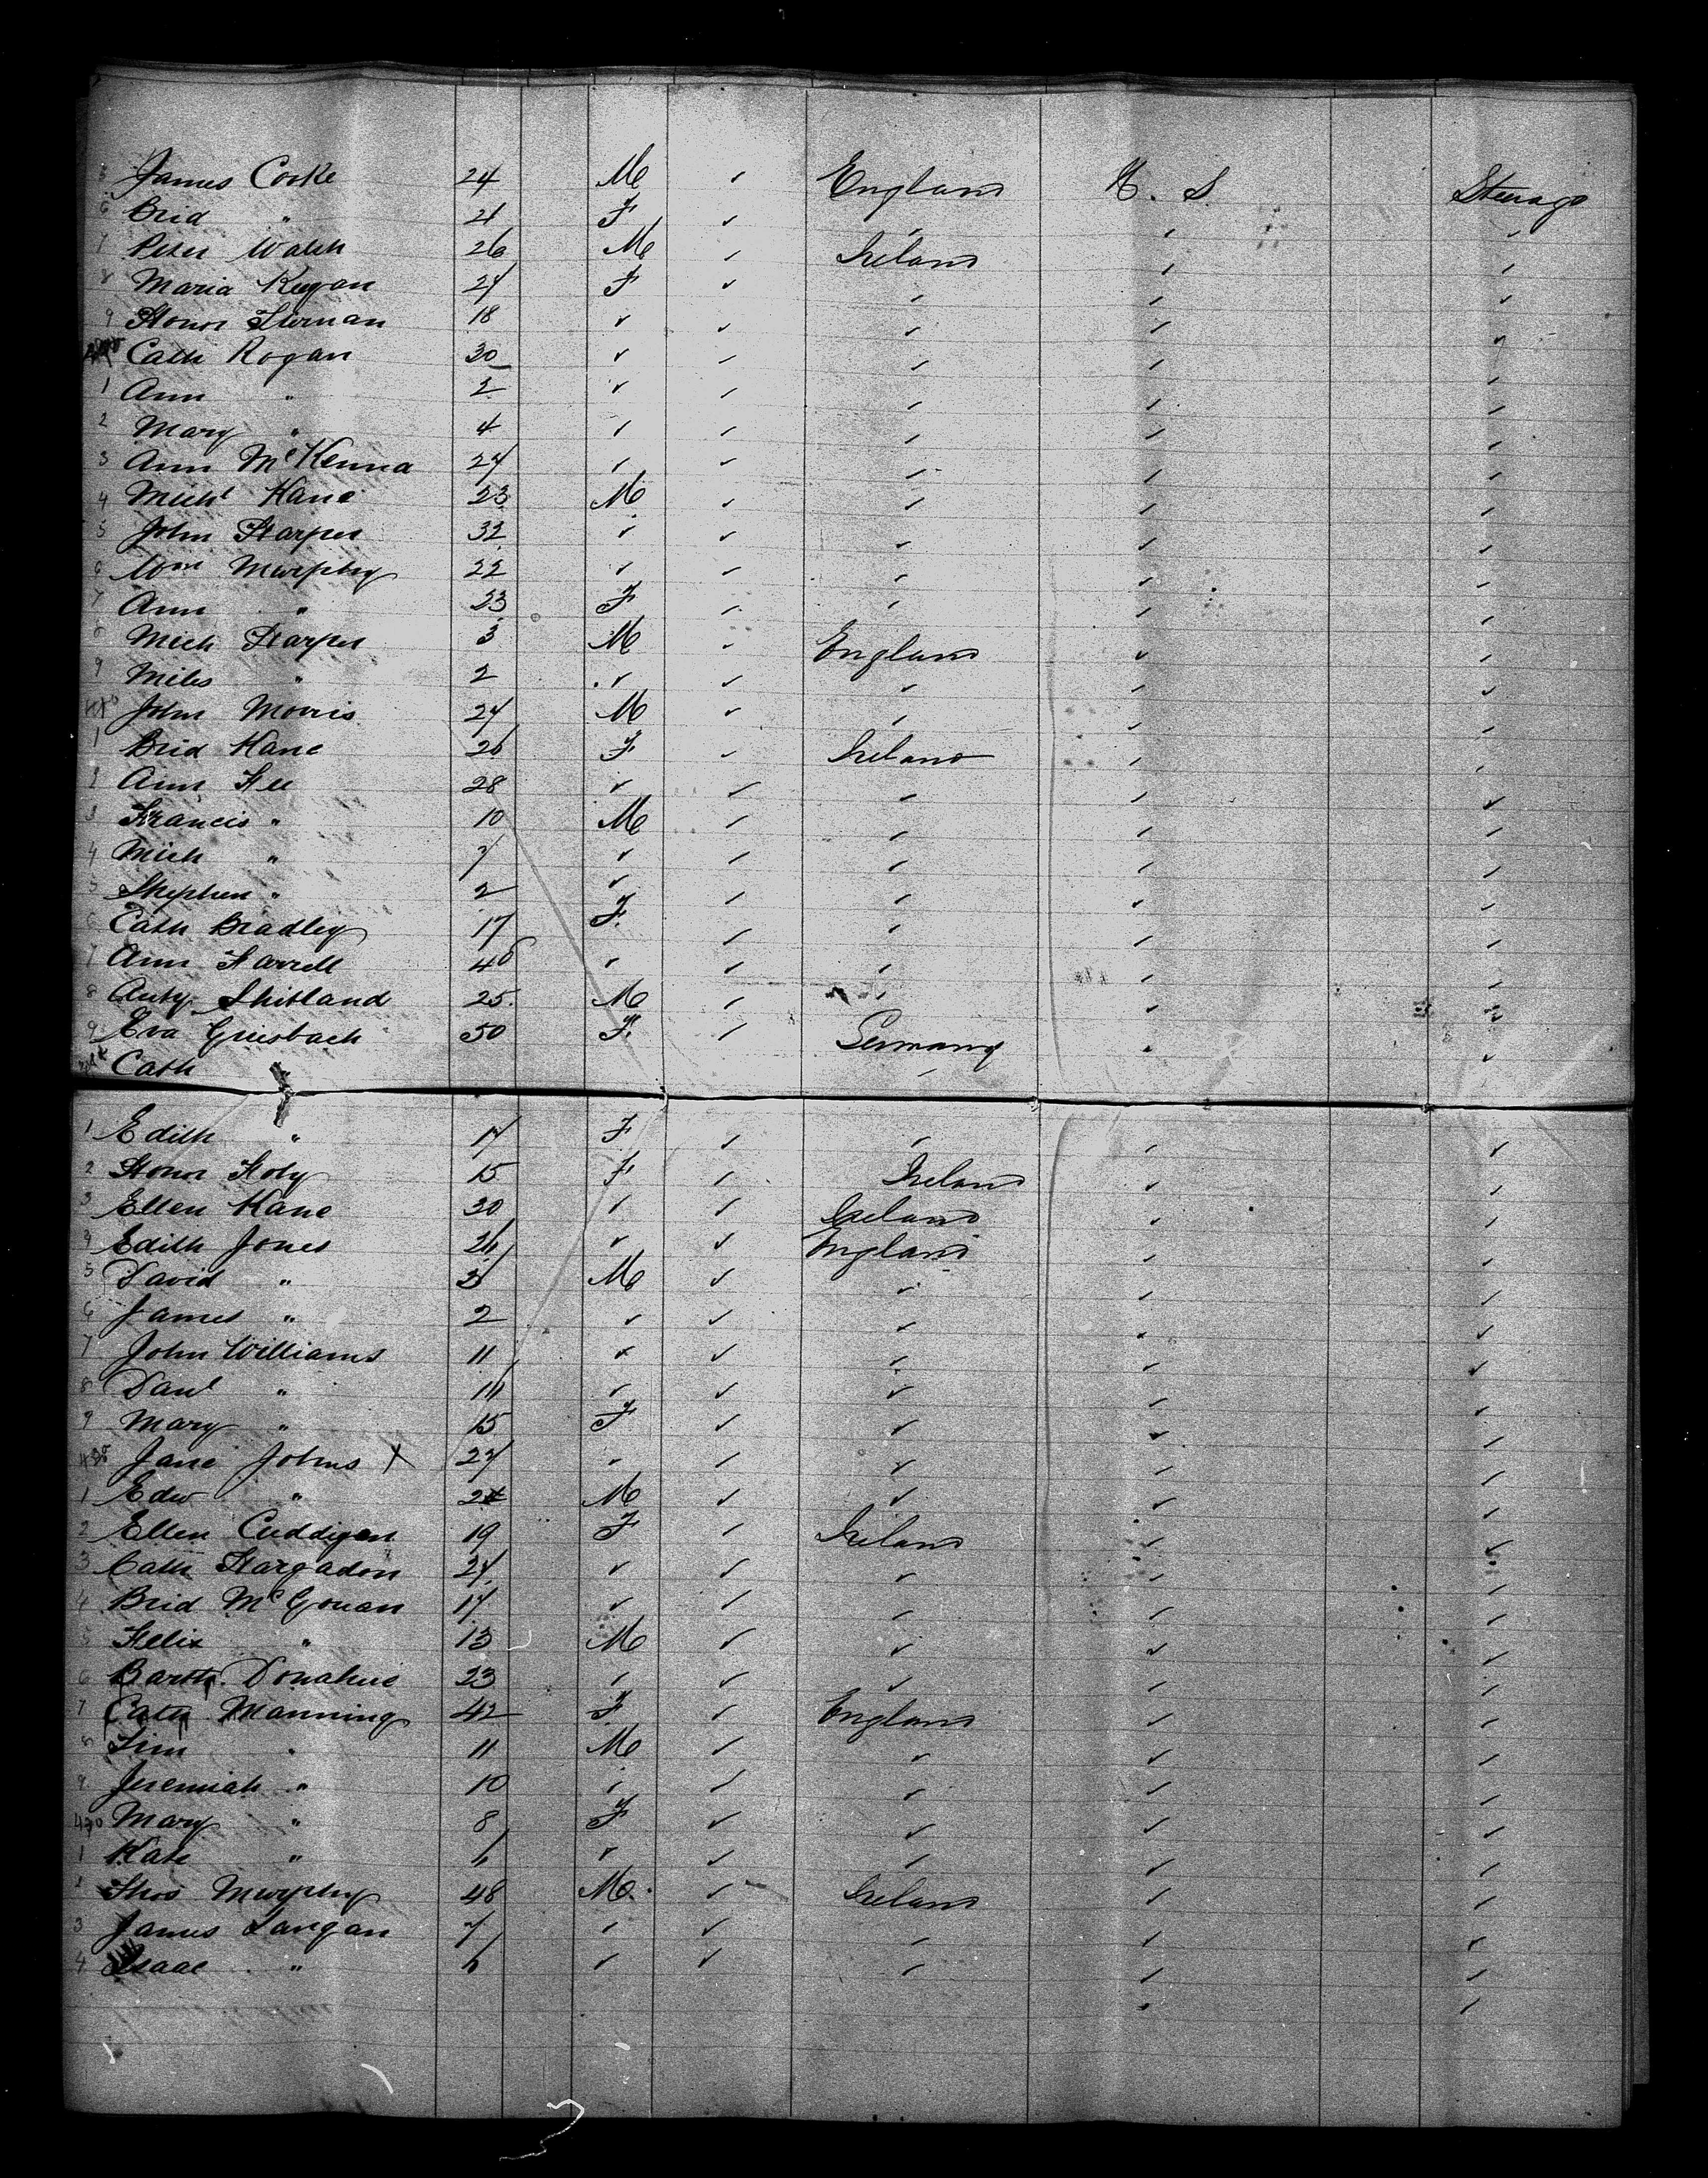 5 James Cooke 24 M ✓ England U. S. Steerage
6 Brid " 21 F ✓ ✓ ✓ ✓
7 Peter Walsh 26 M ✓ Ireland ✓ ✓
8 Maria Keegan 24 F ✓ ✓ ✓ ✓
9 Honor 18 ✓ ✓ ✓ ✓ ✓
Cath Rogan 30 ✓ ✓ ✓ ✓ ✓
1 Ann " 2 ✓ ✓ ✓ ✓ ✓
2 Mary " 4 ✓ ✓ ✓ ✓ ✓
3 Ann McKenna 24 ✓ ✓ ✓ ✓ ✓
4 Michl Kane 23 M ✓ ✓ ✓ ✓
5 John Harper 32 ✓ ✓ ✓ ✓ ✓
6 Wm Murphy 22 ✓ ✓ ✓ ✓ ✓
7 Ann " 23 F ✓ ✓ ✓ ✓
8 Mich Harper 3 M ✓ England ✓ ✓
9 Miles " 2 ✓ ✓ ✓ ✓ ✓
John Morris 24 M ✓ ✓ ✓ ✓
1 Brid Kane 26 F ✓ Ireland ✓ ✓
2 Ann Fee 28 ✓ ✓ ✓ ✓ ✓
3 Francis " 10 M ✓ ✓ ✓ ✓
4 Mich " 7 ✓ ✓ ✓ ✓ ✓
5 Stephen " 2 ✓ ✓ ✓ ✓ ✓
6 Cath Bradley 17 F ✓ ✓ ✓ ✓
7 Ann Farrell 40 ✓ ✓ ✓ ✓ ✓
8 Anty Shitland 25 M ✓ ✓ ✓ ✓
9 Eva Griesbach 50 F ✓ Germany ✓ ✓
Cath "
1 Edith " 17 F ✓ ✓ ✓ ✓
2 Honor Foly 15 F ✓ Ireland ✓ ✓
3 Ellen Kane 20 ✓ ✓ Ireland ✓ ✓
4 Edith Jones 26 ✓ ✓ England ✓ ✓
5 David " 3 M ✓ ✓ ✓ ✓
6 James " 2 ✓ ✓ ✓ ✓ ✓
7 John Williams 11 ✓ ✓ ✓ ✓ ✓
8 Danl " ✓ ✓ ✓ ✓ ✓
9 Mary " 15 F ✓ ✓ ✓ ✓
Jane Johns X 27 ✓ ✓ ✓ ✓ ✓
1 Edw " M ✓ ✓ ✓ ✓
2 Ellen Cuddigan 19 F ✓ Ireland ✓ ✓
3 Cath Hargadon 24 ✓ ✓ ✓ ✓ ✓
4 Brid McGouan 17 ✓ ✓ ✓ ✓ ✓
5 Felix " 13 M ✓ ✓ ✓ ✓
6 Barth Donahue 23 ✓ ✓ ✓ ✓ ✓
7 Cath Manning 42 F ✓ England ✓ ✓
8 Tim " 11 M ✓ ✓ ✓ ✓
9 Jeremiah " 10 ✓ ✓ ✓ ✓ ✓
Mary " 8 F ✓ ✓ ✓ ✓
1 Kate " 6 ✓ ✓ ✓ ✓ ✓
2 Thos Murphy 48 M ✓ Ireland ✓ ✓
3 James Langan 7 ✓ ✓ ✓ ✓ ✓
4 Isaac " 6 ✓ ✓ ✓ ✓ ✓